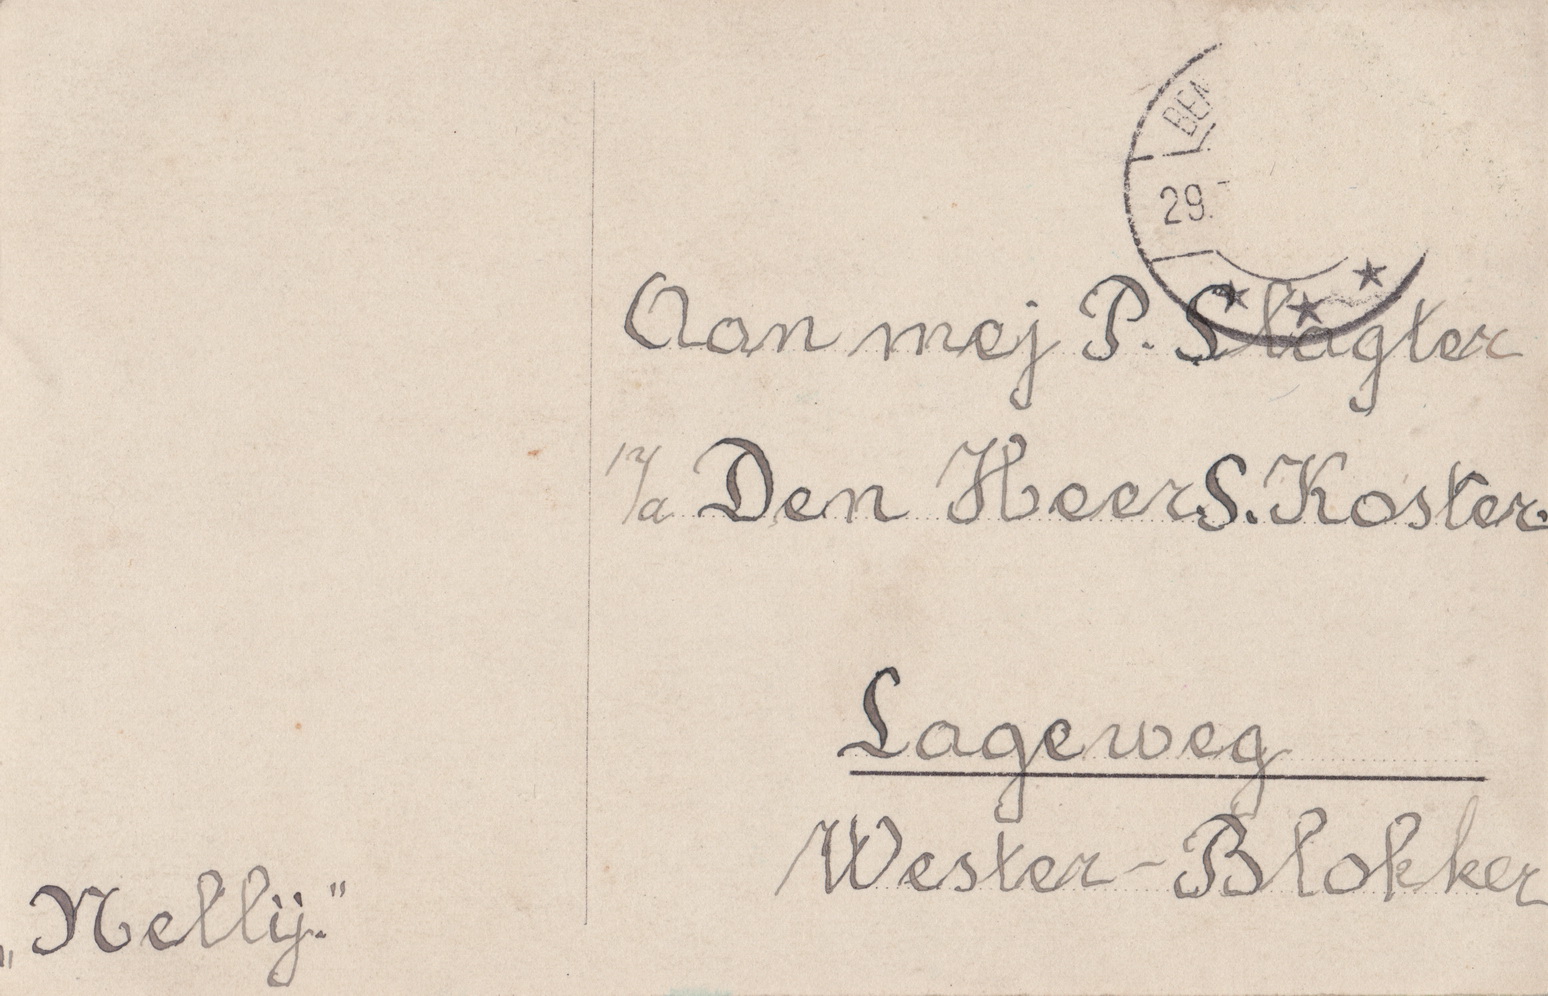 BEA
29.
Aan mej P. Slagter
p/a Den Heer S. Koster.
Lageweg
Wester-Blokker
„Nellij."